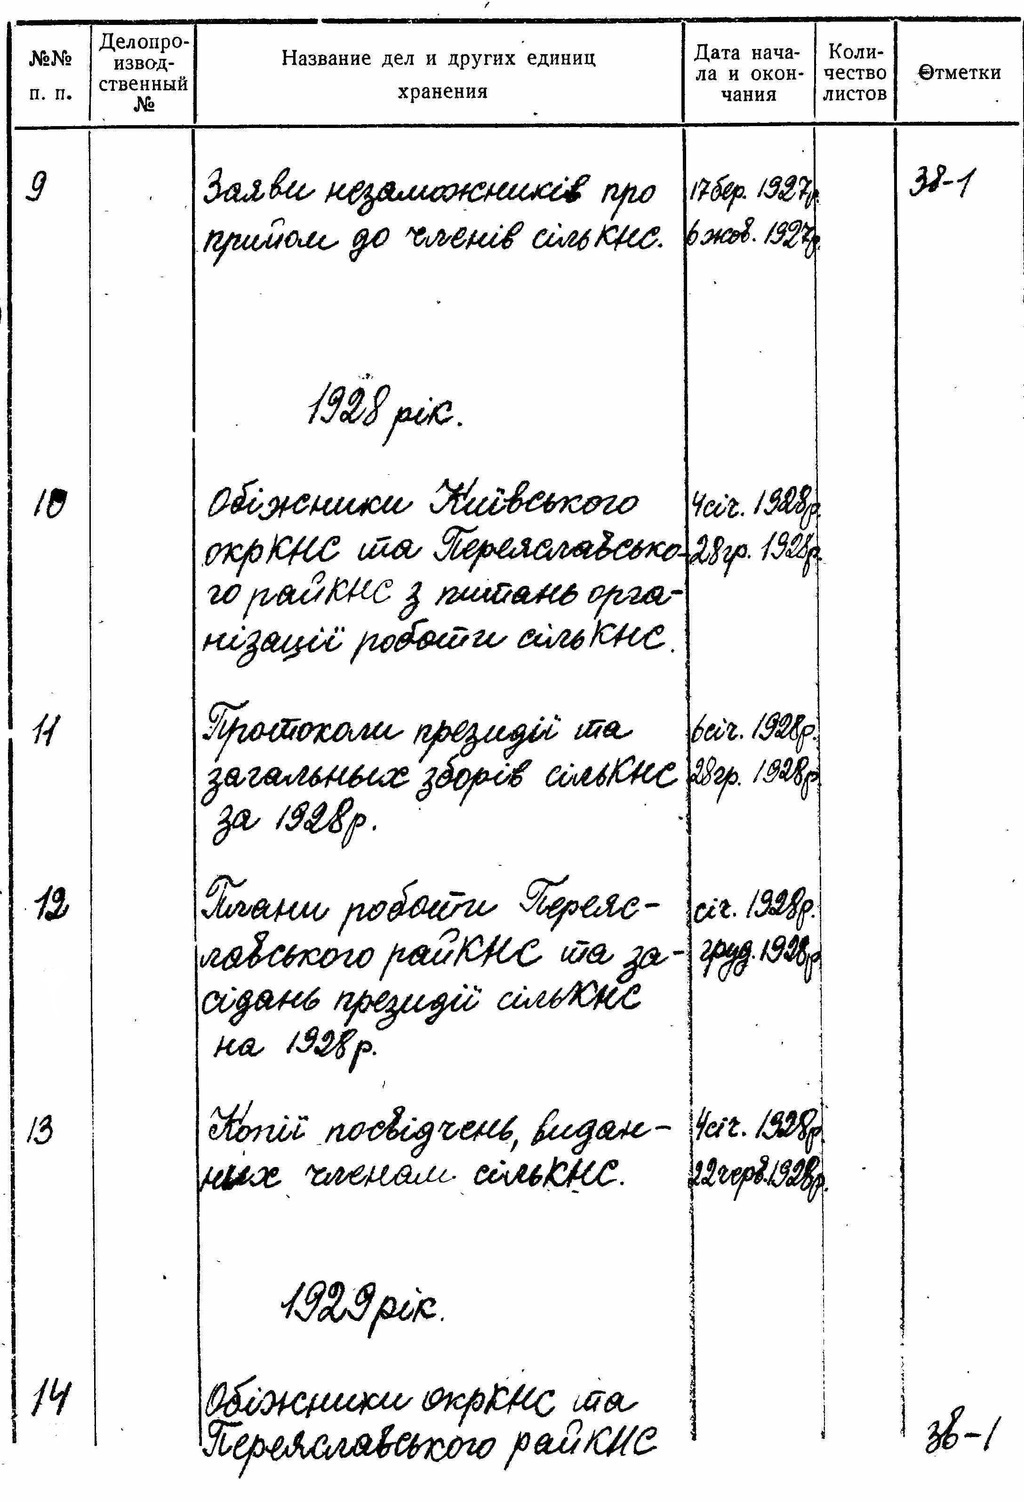 №№ п. п.
Делопро-
извод-
ственный
№
Название дел и других единиц
хранения
Дата нача-
ла и окон-
чания
Коли-
чество
листов
Отметки
9
Заяви незаможників про
прийом до членів сільКНС.
17 бер. 1927р.
6 жов. 1927р.
38-1
1928 рік.
10
Обіжники Київського
окрКНС та Переяславсько-
го райКНС з питань орга-
нізації роботи сільКНС.
4 січ. 1928р.
28 гр. 1928р.
11
Протоколи президії та
загальных зборів сільКНС
за 1928р.
6 січ. 1928р.
28 гр. 1928р.
12
Плани роботи Переяс-
лавського райКНС та за-
сідань президії сільКНС
на 1928р.
січ. 1928р.
груд. 1928р.
13
Копії посвідчень, видан-
них членам сільКНС.
4 січ. 1928р.
22 черв. 1928р.
1929 рік.
14
Обіжники окрКНС та
Переяславського райКНС
38-1